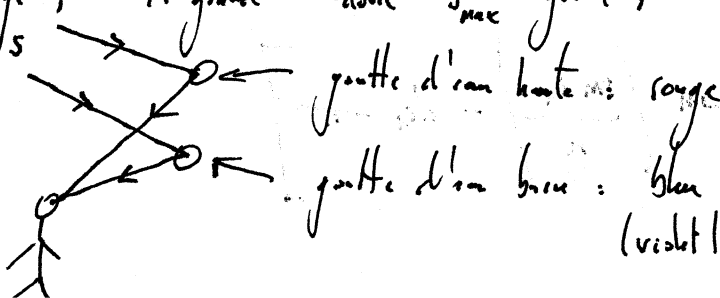 max
S
goutte d'eau haute : rouge
goutte d'eau basse : bleu
(violet)